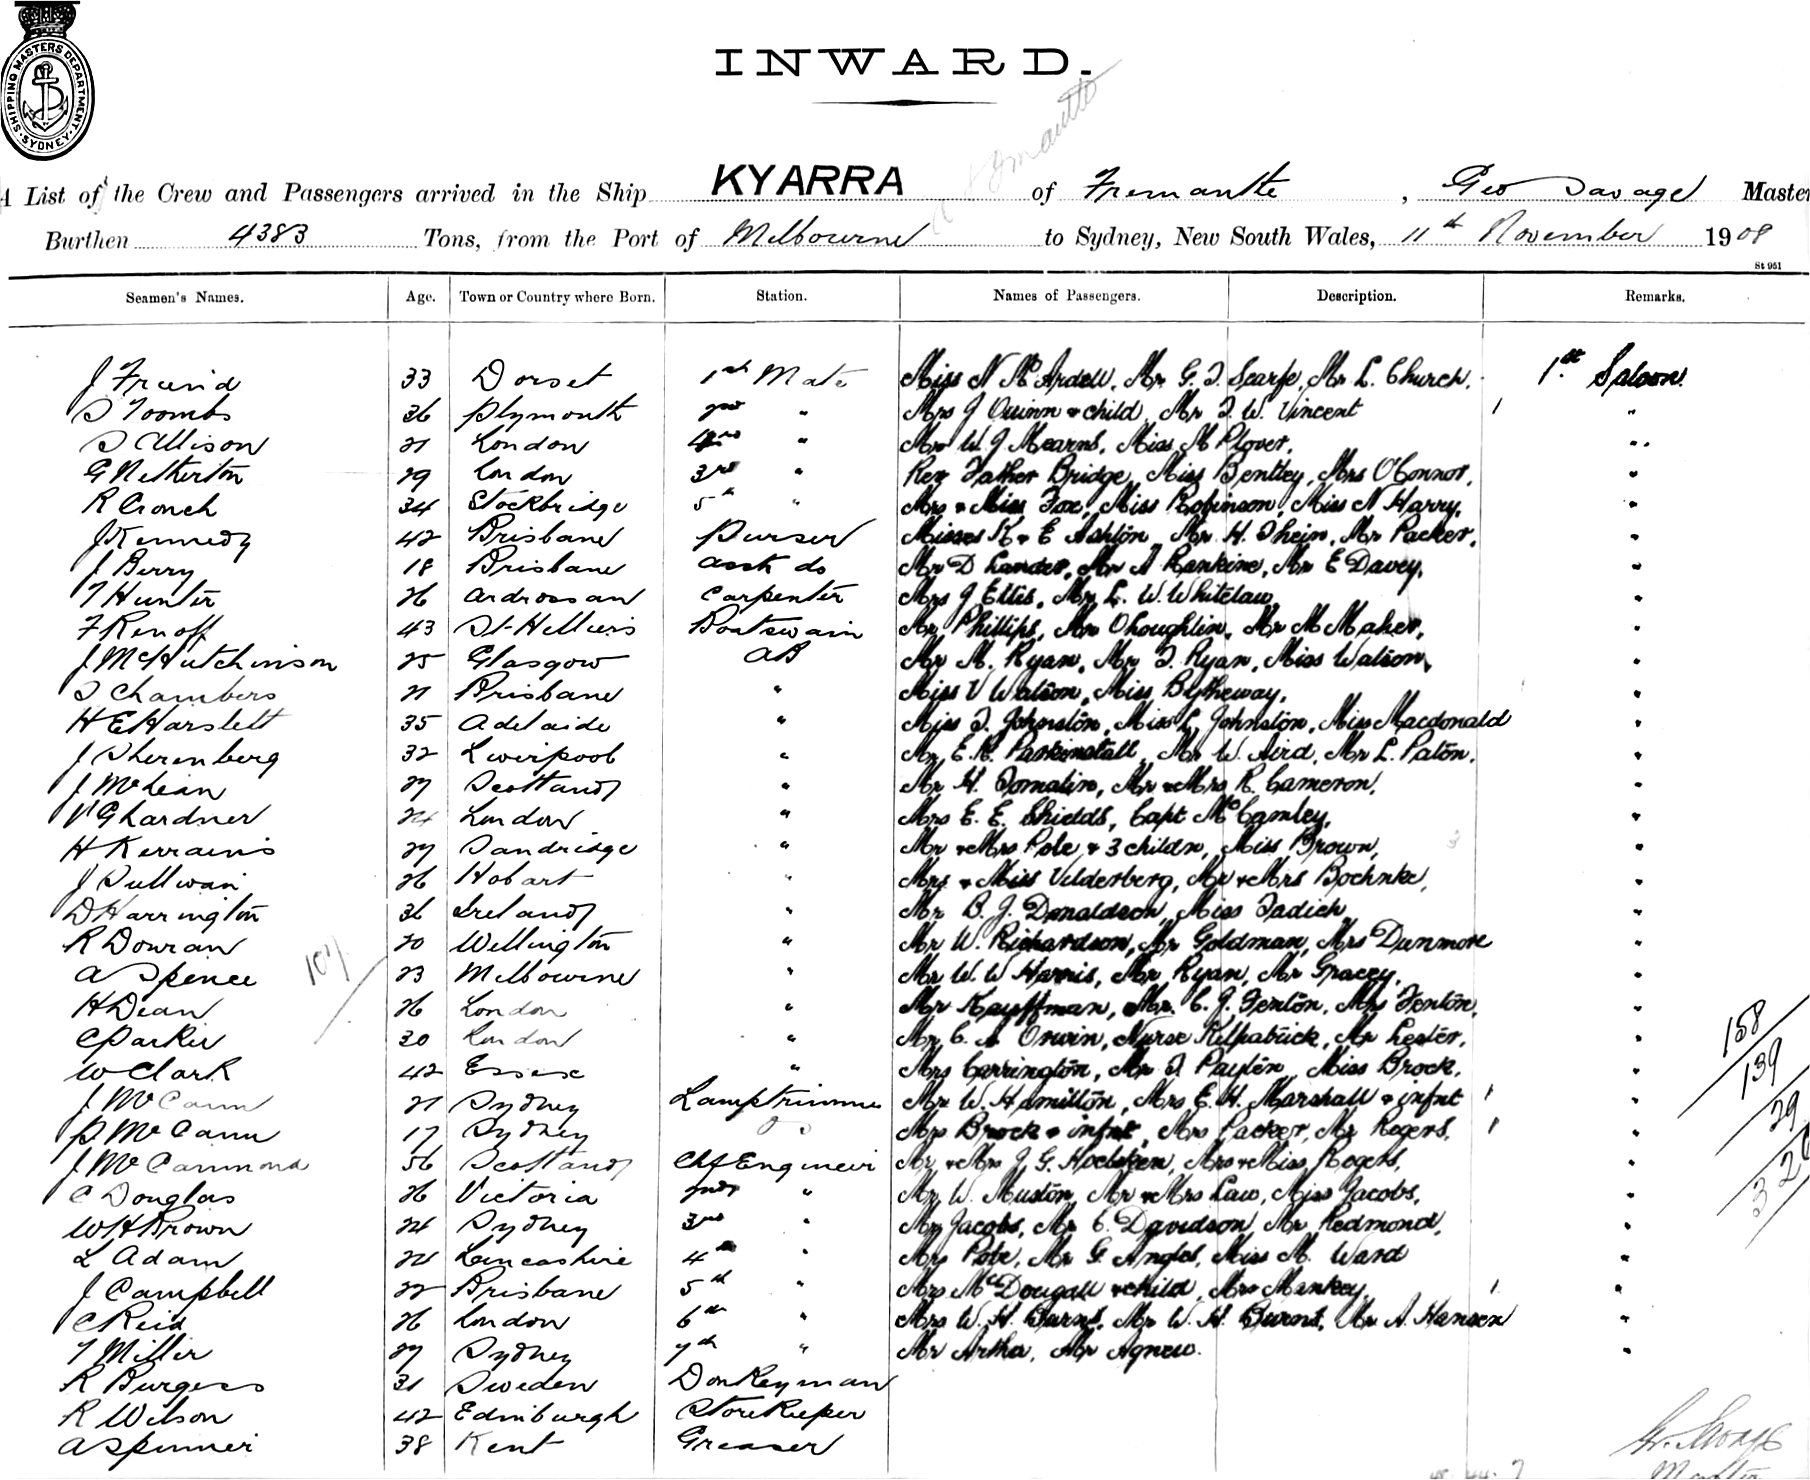 SHIPPING MASTERS DEPARTMENT. SYDNEY
INWARD.
Fremantle
A List of the Crew and Passengers arrived in the Ship KYARRA of Fremantle, Geo Savage Master
Burthen 4383 Tons, from the Port of Melbourne to Sydney, New South Wales, 11th November 1908
St 951
Seamen's Names. Age. Town or Country where Born. Station. Names of Passengers. Description. Remarks.
J Freund 33 Dorset 1st Mate Miss N McArdell, Mr G. T. Scarfe, Mr L. Church. 1st Saloon.
S Toombs 36 Plymouth 2nd " Mrs J Quinn & child, Mr T. W. Vincent 1 "
S Allison 21 London " Mr W. J Mearns, Miss M Plover, "
G Netherton 29 London 3rd " Rev Father Bridge, Miss Bentley, Mrs O'Connor, "
R Crouch 34 Stockbridge 5th " Mrs & Miss Fox, Miss Robinson, Miss N Harry, "
J Kennedy 42 Brisbane Purser Misses K & E Ashton, Mr H. Thein, Mr Packer, "
J Berry 18 Brisbane asst do Mr D Lander, Mr A Rankine, Mr E Davey, "
T Hunter 26 Ardrossan Carpenter Mrs J Ellis, Mr L. W. Whitelaw "
F Renoff 43 St Helliers Boatswain Mr Phillips, Mr Oloughlin, Mr M Maher, "
J McHutchinson 25 Glasgow AB Mr M. Ryan, Mr T. Ryan, Miss Watson, "
S Chambers 21 Brisbane " Miss V Watson, Miss Bytheway, "
H E Harslett 35 Adelaide " Miss T. Johnston, Miss L Johnston, Miss Macdonald "
J Sherenberg 32 Liverpool " Mr E. R. Parkinstall, Mr W. Aird, Mr L. Paton, "
J McLean 27 Scotland " Mr H. Tomalin, Mr & Mrs R. Cameron, "
V Ghardner 24 London " Mrs E. E. Shields, Capt McCamley, "
H Kerrains 27 Sandridge " Mr & Mrs Pole & 3 childn, Miss Brown, 3 "
J Sullivan 26 Hobart " Mrs & Miss Velderberg, Mr & Mrs Bochnke, "
D Harrington 36 Ireland " Mr B. J. Donaldson, Miss Tadich "
R Dowran 20 Wellington " Mr W. Richardson, Mr Goldman, Mrs Dunmore "
A Spence 23 Melbourne " Mr W. W Harris, Mr Ryan, Mr Gracey, "
107
H Dean 26 London " Mr Kauffman, Mr. C. J. Fenton, Mrs Fenton, "
C Parker 30 London " Mr C. A Orwin, Nurse Kilpatrick, Mr Lester, "
W Clark 42 Essex " Mrs Carrington, Mr T Payten, Miss Brock, "
J McCann 21 Sydney Lamptrimmer Mr W. Hamilton, Mrs E. H. Marshall & infnt 1 "
P McCann 17 Sydney Mrs Brock & infnt, Mrs Packer, Mr Rogers, 1 "
J McCammond 56 Scotland Chf Engineer Mr & Mrs J G. Hoelsken, Mrs & Miss Rogers, "
C Douglas 26 Victoria 2nd " Mr W. Muston, Mr & Mrs Law, Miss Jacobs, "
W H Brown 24 Sydney 3rd " Mr Jacobs, Mr C. Davidson, Mr Redmond, "
L Adam 24 Lancashire 4th " Mrs Pobe, Mr G. Angel, Miss M. Ward "
J Campbell 22 Brisbane 5th " Mrs McDougall & child, Mrs Menkey, 1 "
C Reid 26 London 6th " Mrs W. H. Burns, Mr W. H. Burns, Mr A. Hansen "
T Miller 27 Sydney 7th " Mr Artha, Mr Agnew. "
R Burgess 31 Sweden Donkeyman
R Wilson 42 Edinburgh Storekeeper
A Spinner 38 Kent Greaser
158
139
29
326
G. Savage
Master